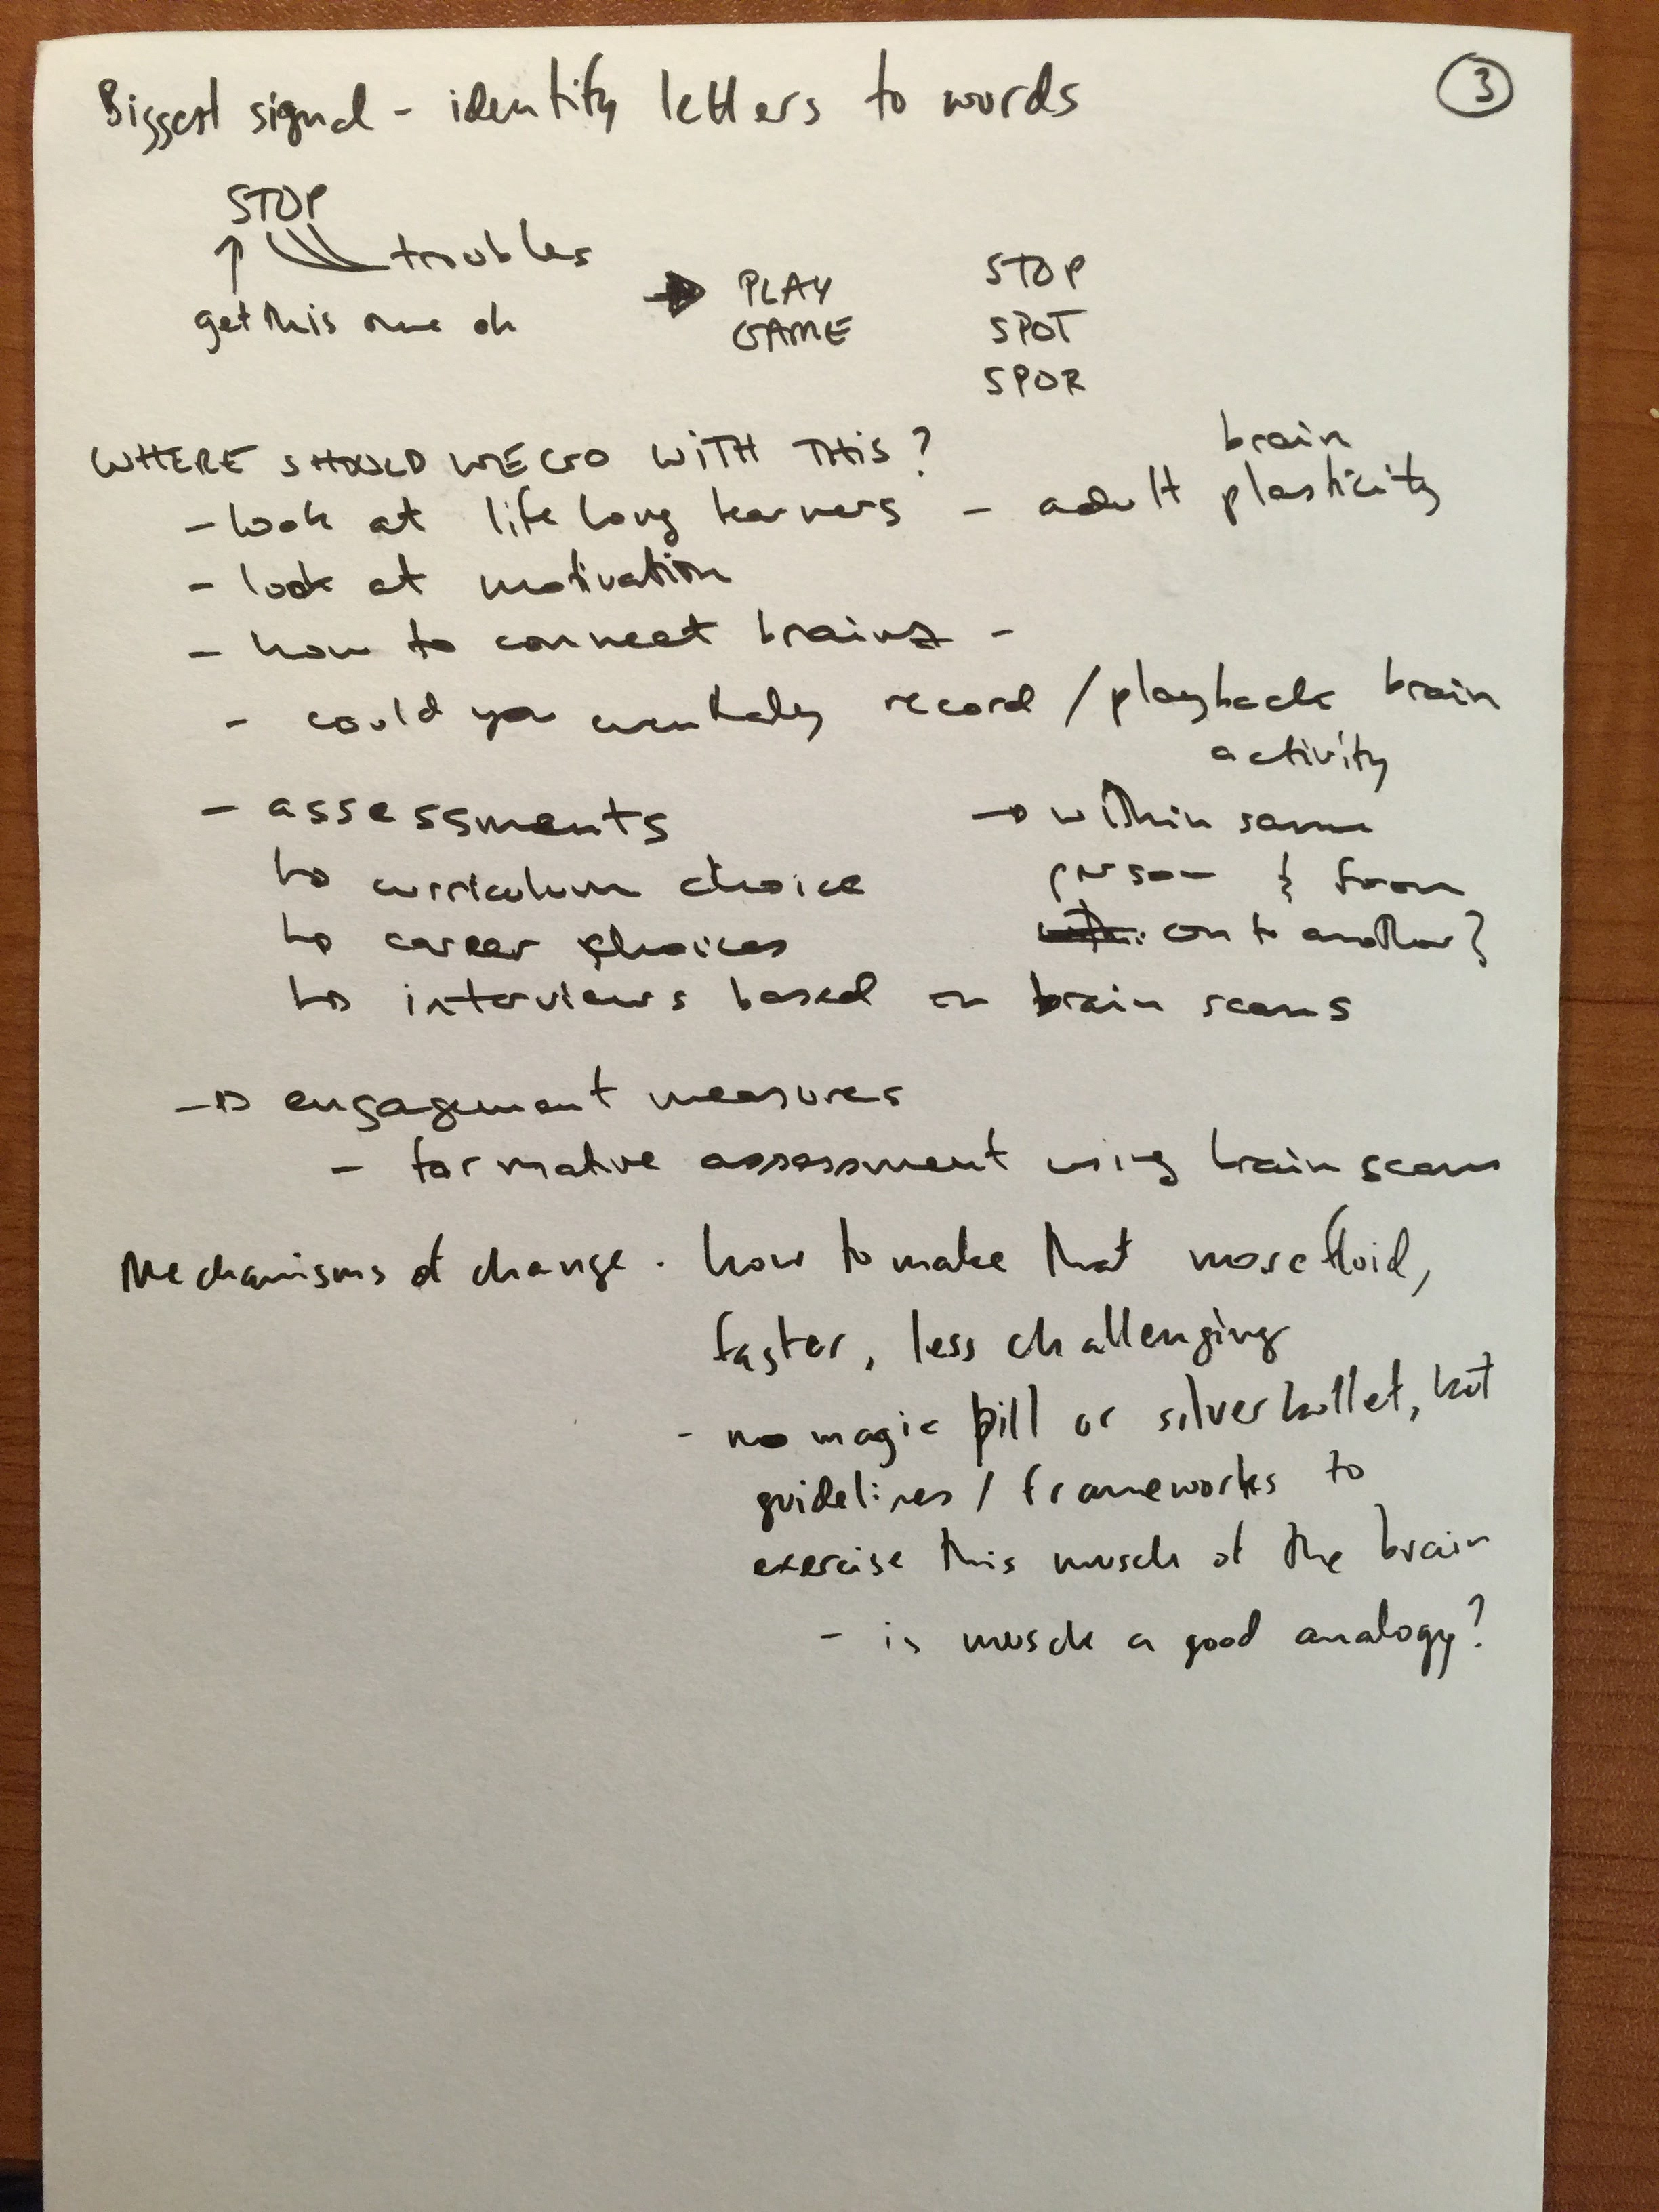 Biggest signal - identify letters to words
3
STOP
troubles
get this one ok
PLAY
GAME
STOP
SPOT
SPOR
WHERE SHOULD WE GO WITH THIS?
- look at life long learners - adult brain plasticity
- look at motivation
- how to connect brains -
- could you eventually record / playback brain
activity
→ within same
person & from
on to another?
- assessments
↳ curriculum choice
↳ career choices
↳ interviews based on brain scans
→ engagement measures
- formative assessment using brain scans
Mechanisms of change. how to make that more fluid,
faster, less challenging
- no magic pill or silver bullet, but
guidelines / frameworks to
exercise this muscle of the brain
- is muscle a good analogy?